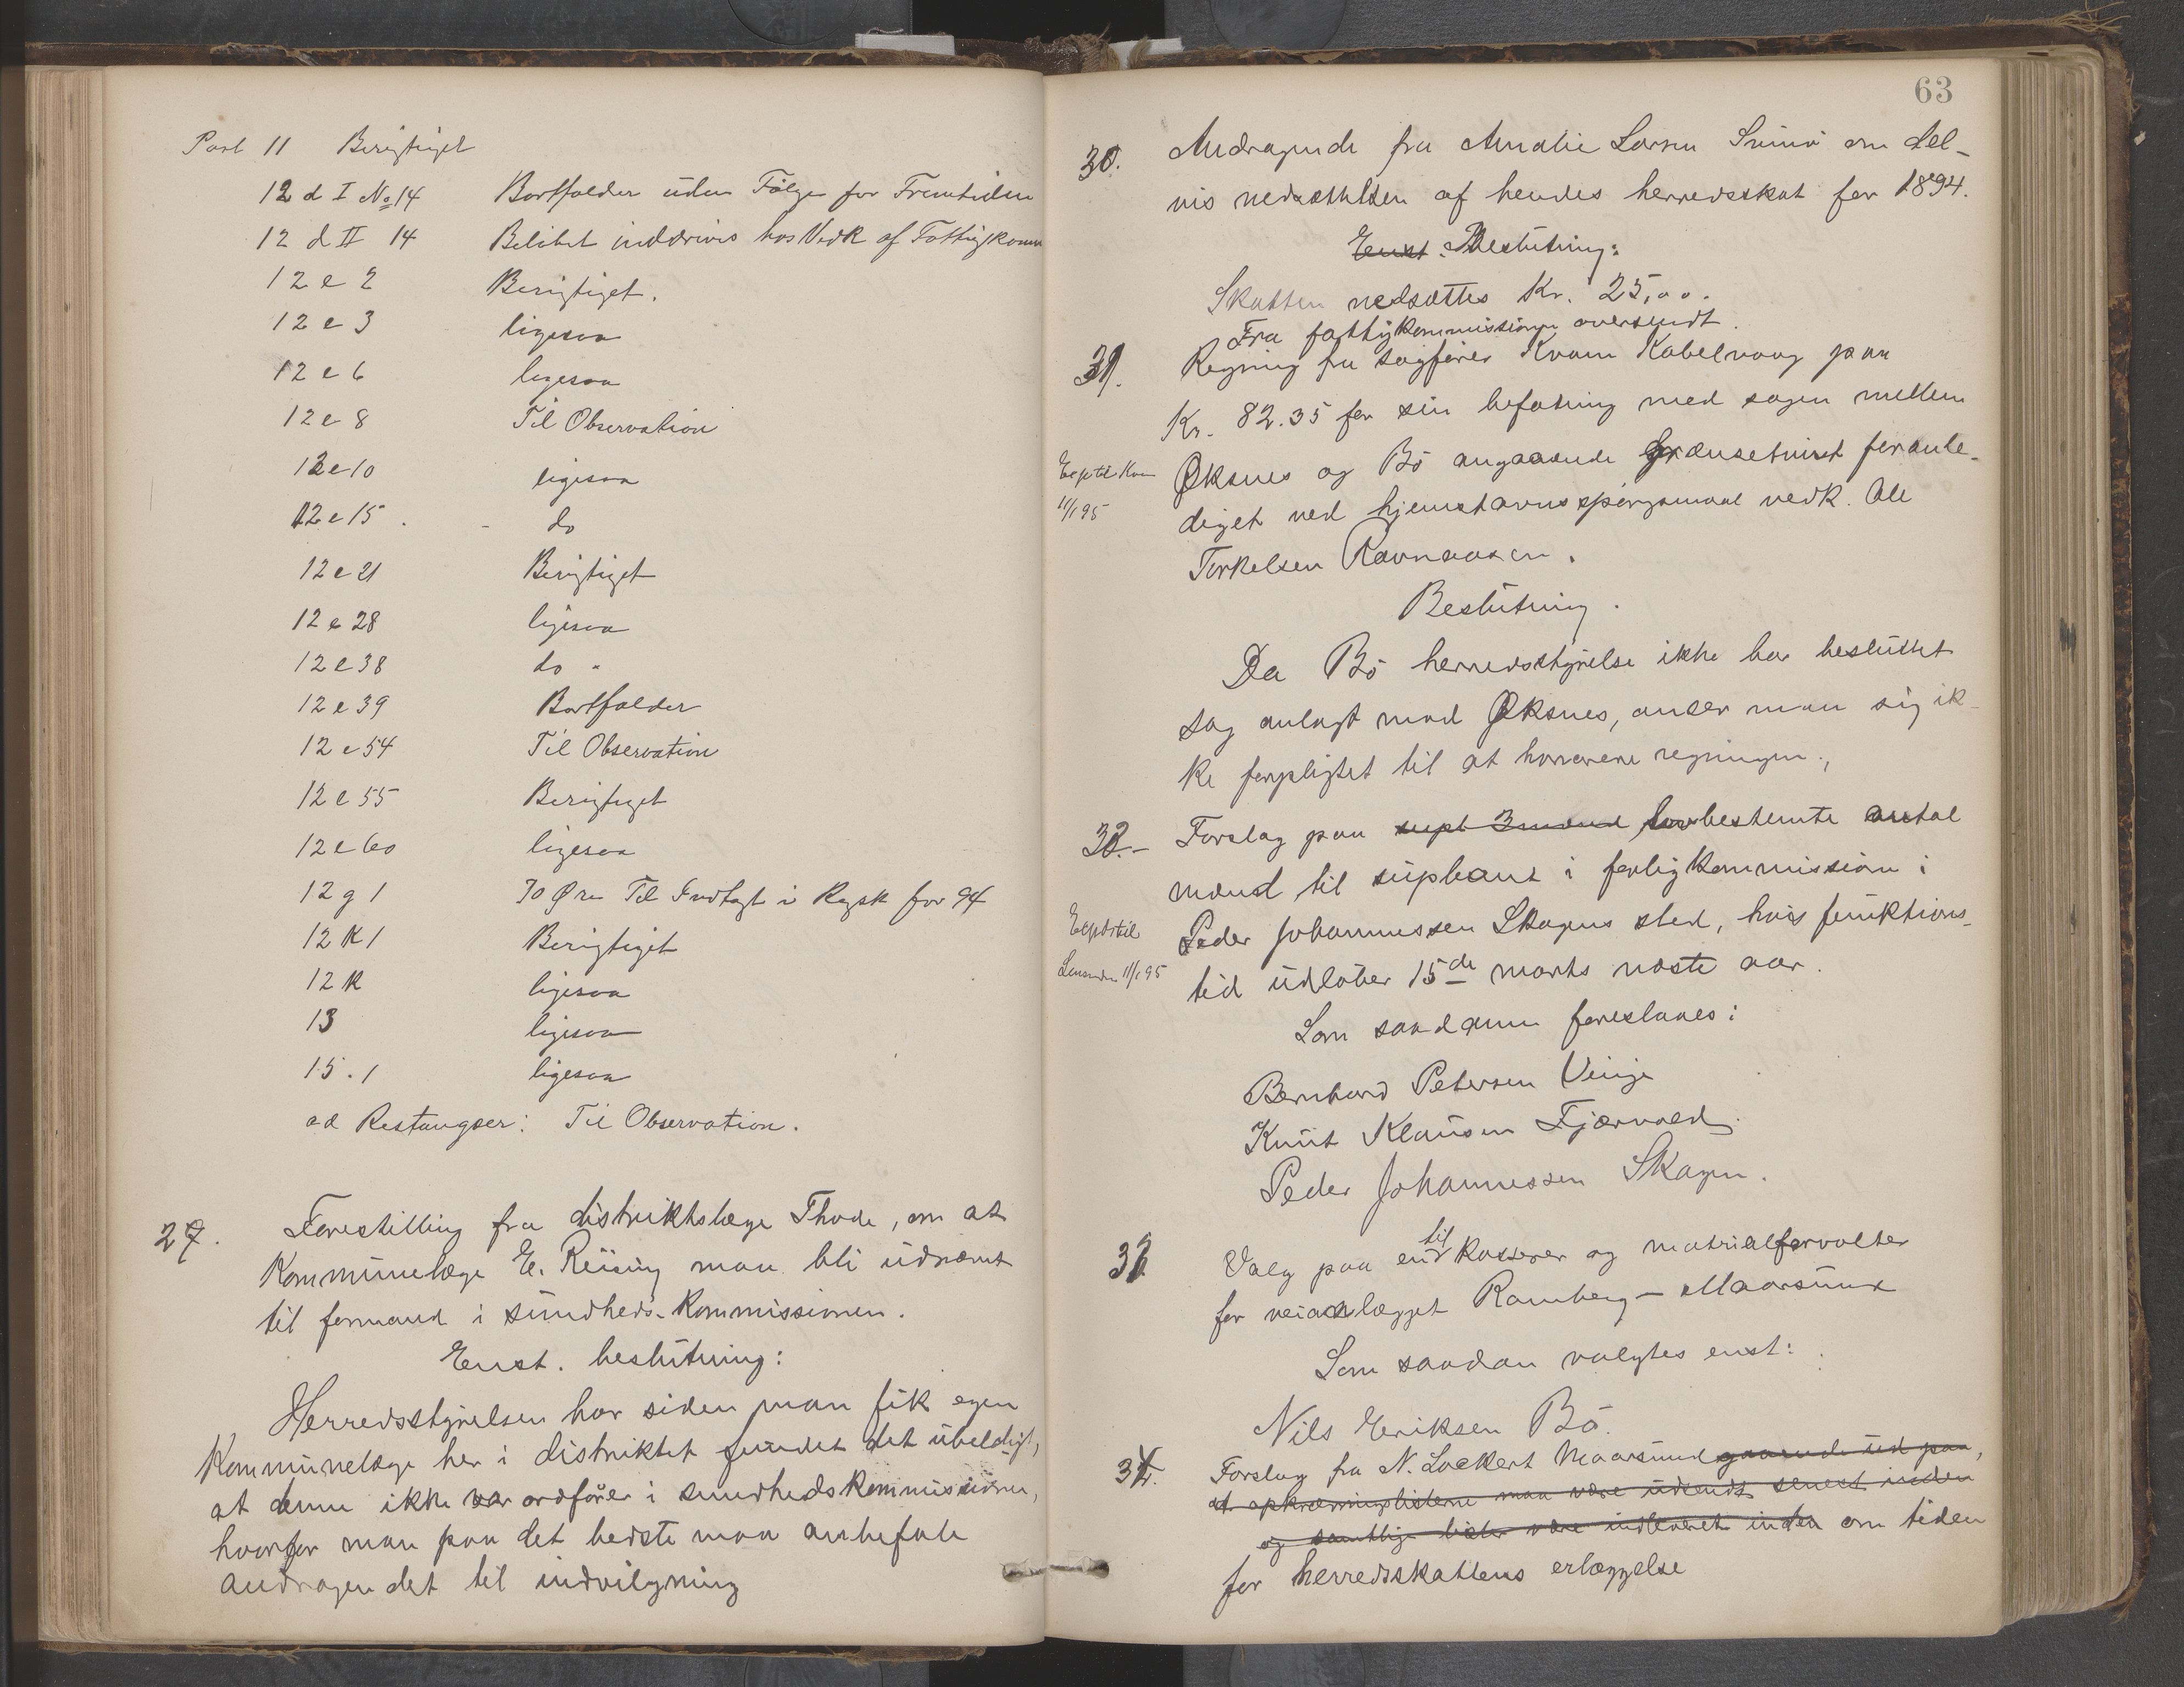 Post 11 Berigtiget
12 d I No 14 Bortfalder uden Følge for Fremtiden
12 d II 14 Beløbet inddrives hos Vedk af Fattigkomm
12 e 2 Berigtiget.
12 e 3 ligesaa
12 e 6 ligesaa
12 e 8 Til Observation
12 e 10 ligesaa
12 e 15. - do
12 e 21 Berigtiget
12 e 28 ligesaa
12 e 38 do "
12 e 39 Bortfalder
12 e 54 Til Observation
12 e 55 Berigtiget
12 e 60 ligesaa
12 g 1 70 Øre Til Indtægt i Regsk for 94
12 K 1 Berigtiget
12 K ligesaa
13 ligesaa
15.1 ligesaa
ad Restangser: Til Observation.
27. Forestilling fra distriktslæge Thode, om at
Kommunelæge E. Reüsing maa bli udnævnt
til formand i sundheds-kommissionen.
Enst. beslutning:
Herredsstyrelsen har siden man fik egen
Kommunelæge her i distriktet fundet det uheldigt,
at denne ikke var ordfører i sundhedskommissionen,
hvorfor man paa det bedste maa anbefale
andragendet til indvilgning
63
30. Andragende fra Amalie Larsen om del-
vis nedsættelsen af hendes herredsskat for 1894.
Enst. Beslutning:
Skatten nedsættes Kr. 25,00.
Fra fattigkommissionen oversendt.
31. Regning fra sagfører Kvam Kabelvaag paa
Kr. 82.35 for sin befatning med sagen mellem
Øksnes og Bø angaaende Grænsetvist foranle-
diget ved hjemstavnsspørgsmaal vedk. Ole
Torkelsen Ravnaasen.
11/1 95
Beslutning.
Da Bø herredsstyrelse ikke har besluttet
sag anlagt mod Øksnes, anser man sig ik-
ke forpligtet til at honorere regningen.,
32.- Forslag paa supl 3 mænd lovbestemte antal
mænd til supleant i forligkommission i
Peder Johannessen Skagens sted, hvis funktions-
tid udløber 15de marts næste aar.
Expd til
11/1 95
Som saadanne foreslaaes:
Bernhard Petersen Vinje
Knut Klausen Fjærvold.
Peder Johannessen Skagen.
33 Valg paa en til Kasserer og matrialforvalter
for veianlægget Ramberg - Maarsund
Som saadan valgtes enst:
Nils Eriksen Bø.
34. Forslag fra N. Lockert Maarsund gaaende ud paa,
at opkrævningslisterne maa være udsendt senest inden
og samtlige lister være indleveret inden om tiden
for herredsskattens erlæggelse